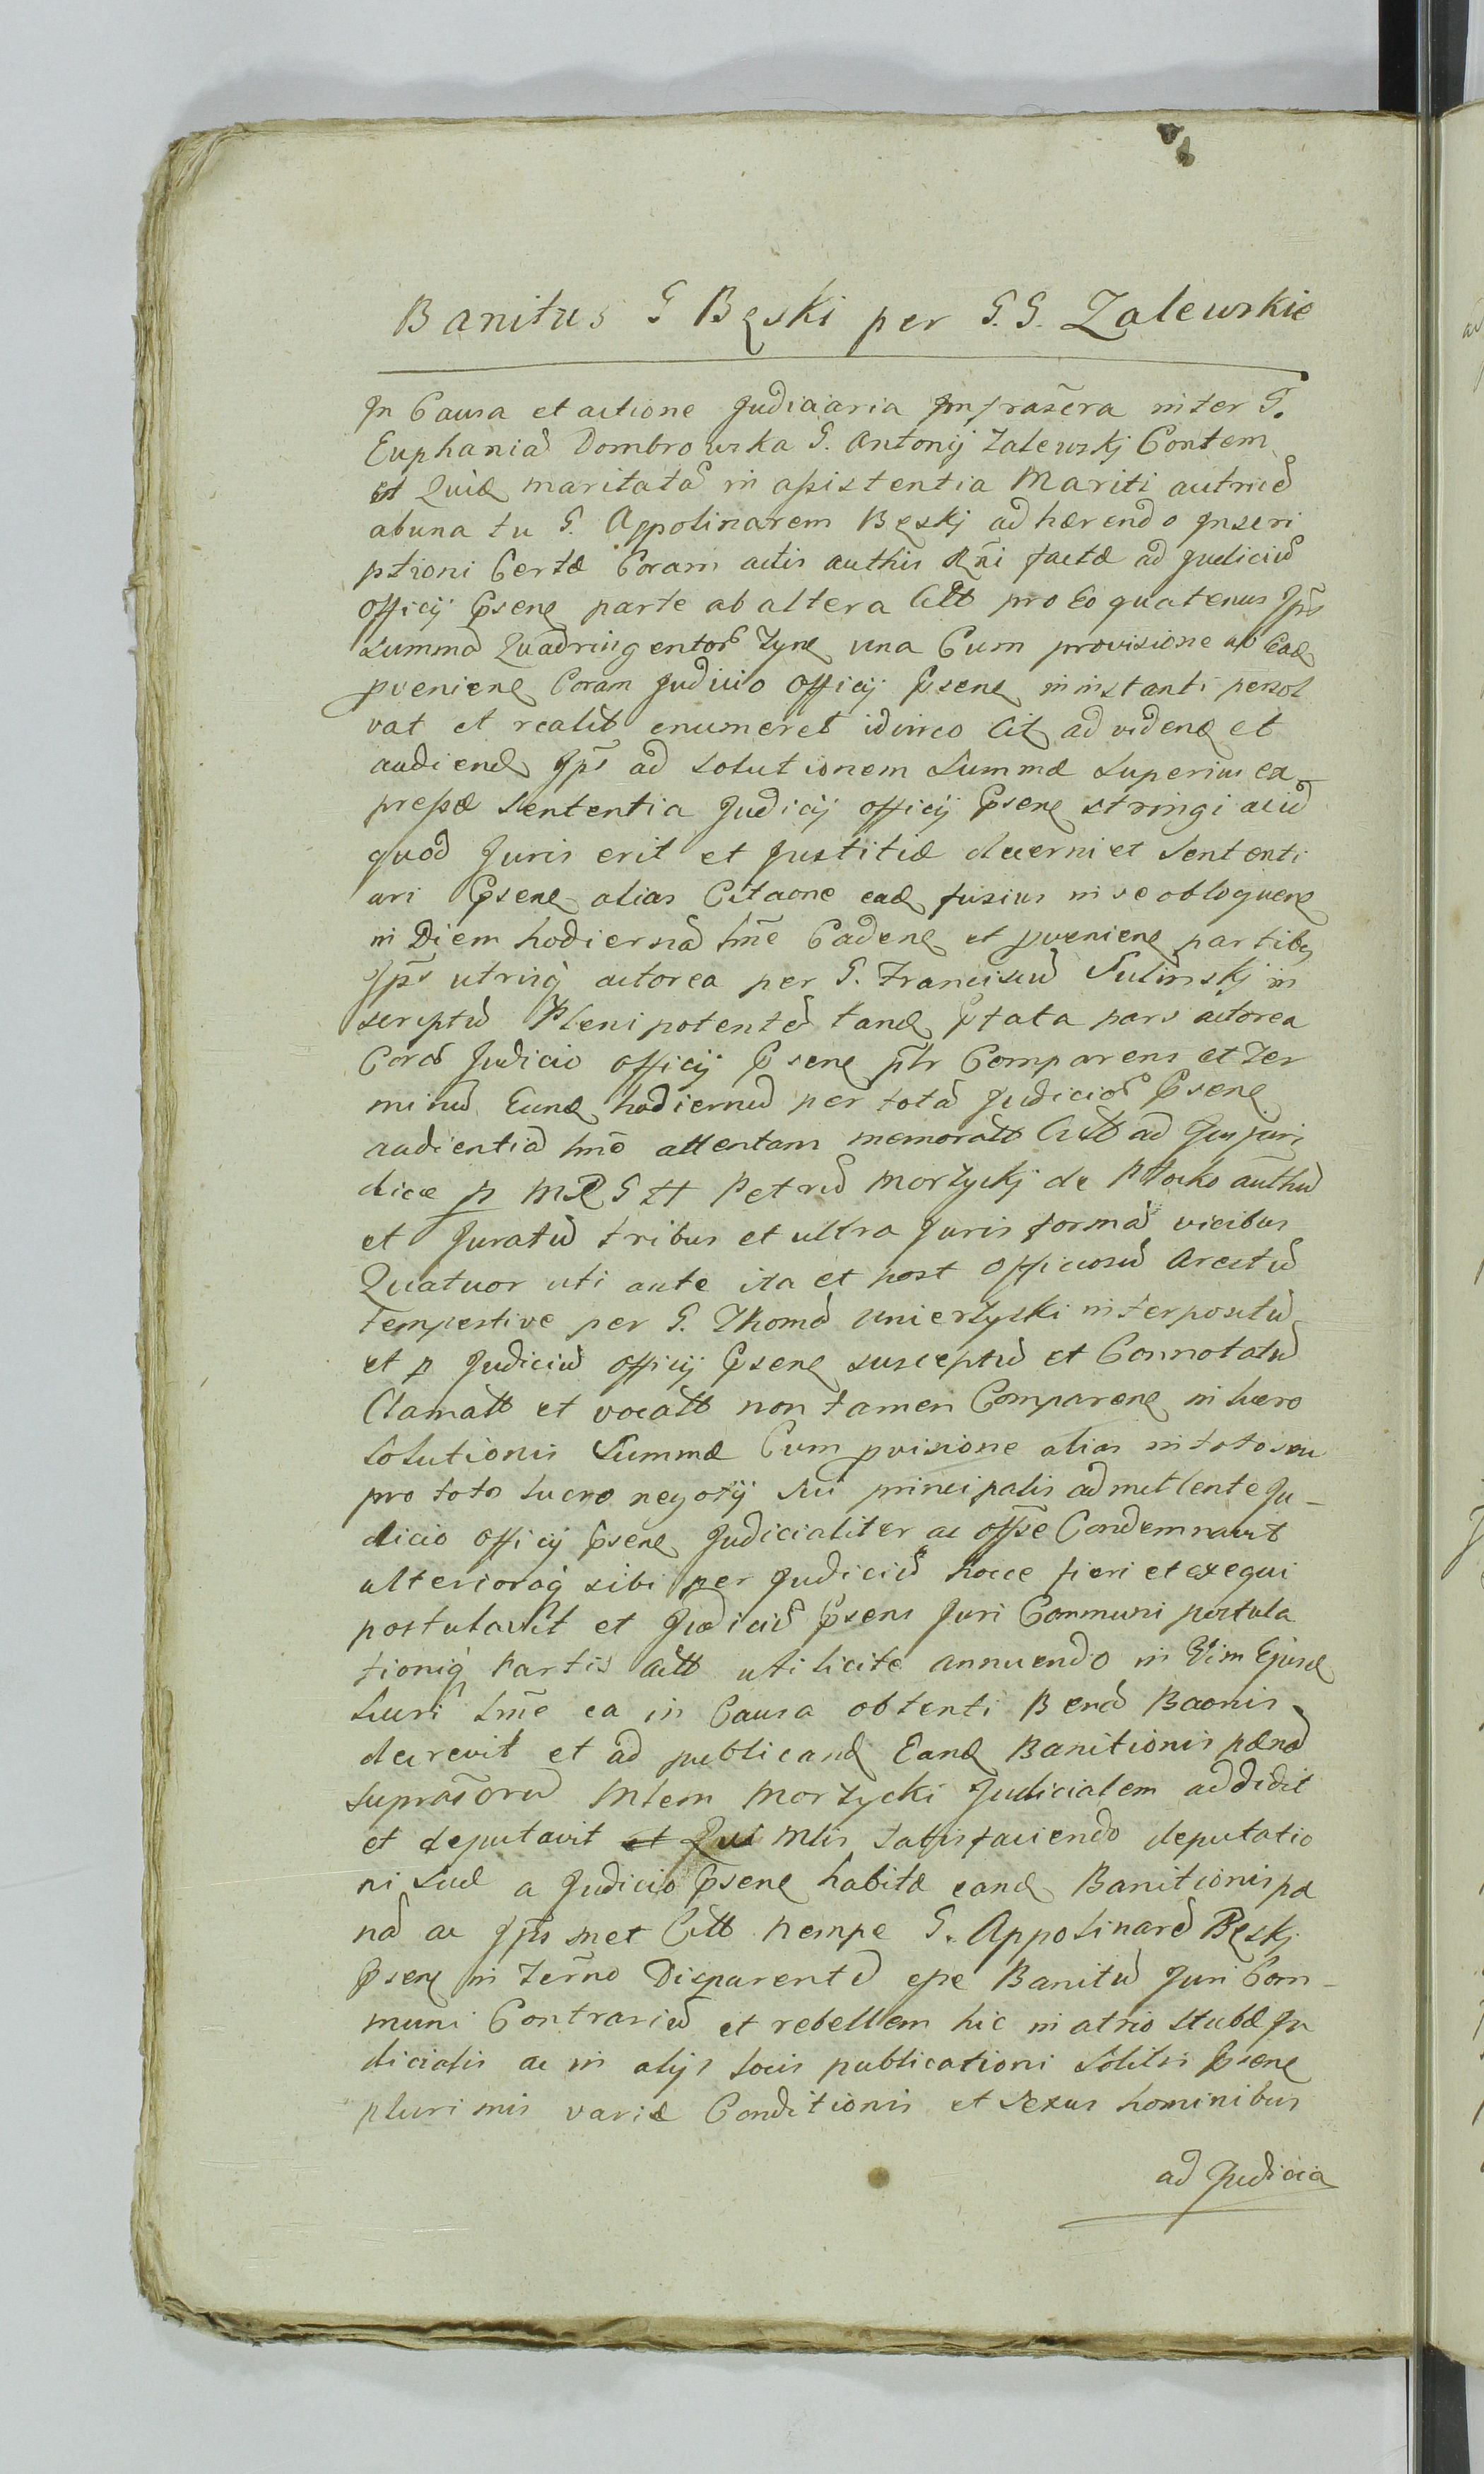 Banitus G Bęski per G.G. Zalewskie
Jn Causa et actione Judiciaria Jnfrascra inter G.
Euphaniam Dombrowska G. Antonij Zalewskj Contem
et Quidem maritatam in assistentia Mariti autricem
ab una tu G. Appolinarem Bęskj adhærendo Jnscri
ptioni Certæ Coram actis authis Rni factæ ad Judicium
officij Psens parte ab altera Citt pro Eo quatenus Jps
Summam Quadringentor Tyn una Cum provisione ab Ead
pveniens Coram Judicio Officij Psens in instanti persol
vat et realit enumeret idcirco Cit ad vidend et
audiend Jps ad Solutionem Summæ Superius ex
pressæ Sententia Judicij officij Psens stringi acid
quod Juris erit et Justitiæ decerni et Sententi
ari Psens alias Citaone ead fusius in se obloquens
in Diem hodiernam lme Cadens et pveniens partibus
Jps utrinq actorea per G. Franciscum Sulinskj in
scriptum Plenipotentem tand Ptata pars actorea
Coram Judicio officij Psens ptr Comparens et Ter
minum Eund hodiernum per totam Judicior Psens
audientiam lme attentam memoratt Citt ad Jus Juri
dice p MR G H Petrum Morzyckj de Płocko authum
et Juratum tribus et ultra Juris formam vicibus
Quatuor uti ante ita et post Officiosum Arestum
tempestive per G. Thomam Unierzyski interpositum
et p Judicium officij Psens susceptum et Connotatum
Clamatt et vocatt non tamen Comparens in lucro
Solutionis Summæ Cum pvisione alias in toto seu
pro toto lucro negotij sui principalis admittente Ju-
dicio officij Psens Judicialiter ac offse Condemnavit
ulterioraq sibi per Judicium hocce fieri et exequi
postulavit et Judicium Psens Juri Communi postula
tioniq Partis Att uti licite annuendo in Vim Ejusd
Lucri lme ea in Causa obtenti Benam Baonis
decrevit et ad publicand Eand Banitionis pænam
suprascrum Mlem Morzycki Judicialem addidit
et deputavit et Qui Mlis satisfaciendo deputatio
ni Suæ a Judicio Psens habitæ eand Banitionis pæ
nam ac Jps met Citt nempe G. Appolinarem Bęskj
Psens in Terno Disparentem esse Banitum Juri Com-
muni Contrarium et rebellem hic in atrio stubæ Ju
dicialis ac in alijs locis publicationi Solitis Psens
plurimis variæ Conditionis et sexus hominibus
ad Judicia